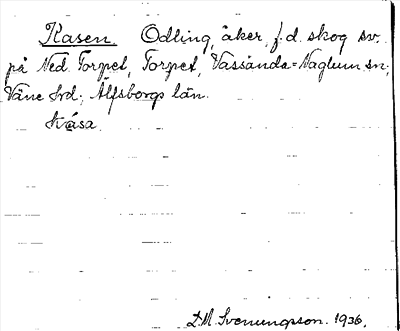 Kasen. Odling, åker, f.d. skog sv.
på Ned. Torpet, Torpet, Vassända-Naglum sn,
Väne hrd; Älfsborgs län.
kása.
D.M. Svenungson. 1936.